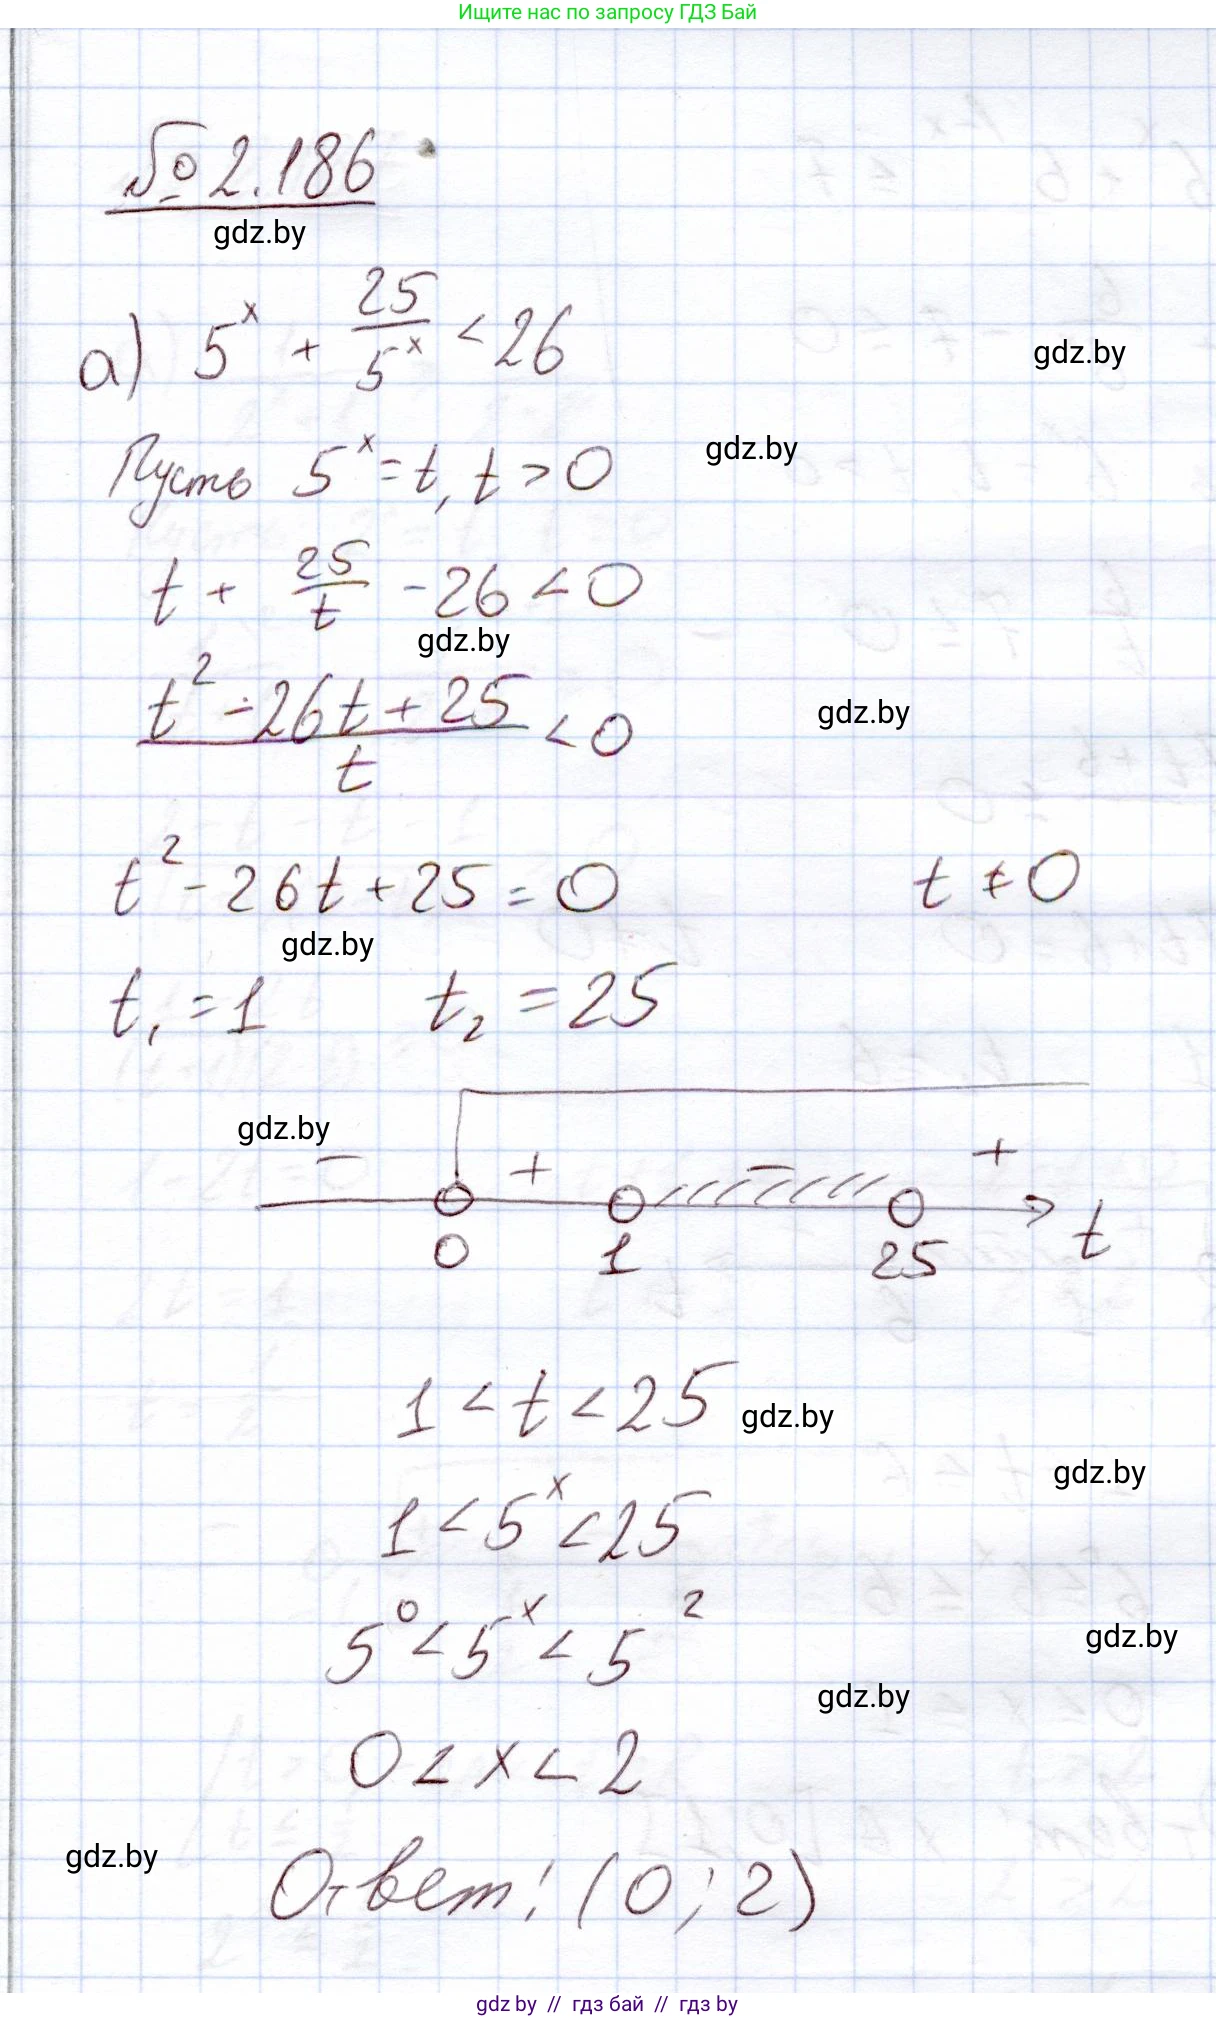 Ищите нас по запросу ГДЗ Бай
№ 2.186
gdz.by
а) 5^x + 25/5^x < 26
gdz.by
Пусть 5^x = t, t > 0
gdz.by
t + 25/t - 26 < 0
gdz.by
(t² - 26t + 25)/t < 0
gdz.by
t² - 26t + 25 = 0 t ≠ 0
gdz.by
t₁ = 1 t₂ = 25
gdz.by
- + - +
0 1 25 t
1 < t < 25
gdz.by
gdz.by
1 < 5^x < 25
5^0 < 5^x < 5^2
gdz.by
gdz.by
0 < x < 2
gdz.by
Ответ: (0; 2)
gdz.by // гдз бай // гдз by